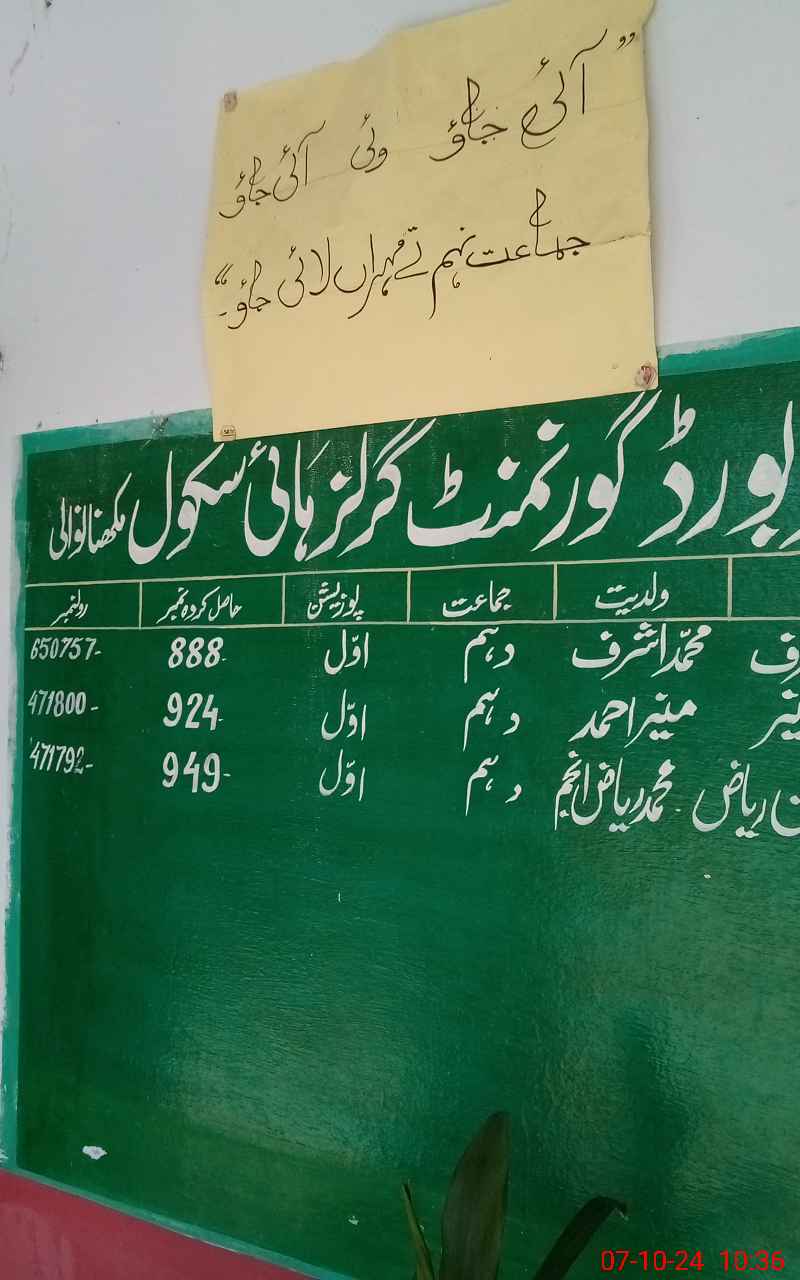 ”آئی جاؤ وئی آئی جاؤ
جماعت نہم تے مہراں لائی جاؤ۔“
بورڈ گورنمنٹ گرلز ہائی سکول مکھنانوالی
ولدیت جماعت پوزیشن حاصل کردہ نمبر رولنمبر
محمد اشرف دہم اوّل 888 650757
منیر احمد دہم اوّل 924 471800
ریاض محمد ریاض انجم دہم اوّل 949 471792
07-10-24 10:36